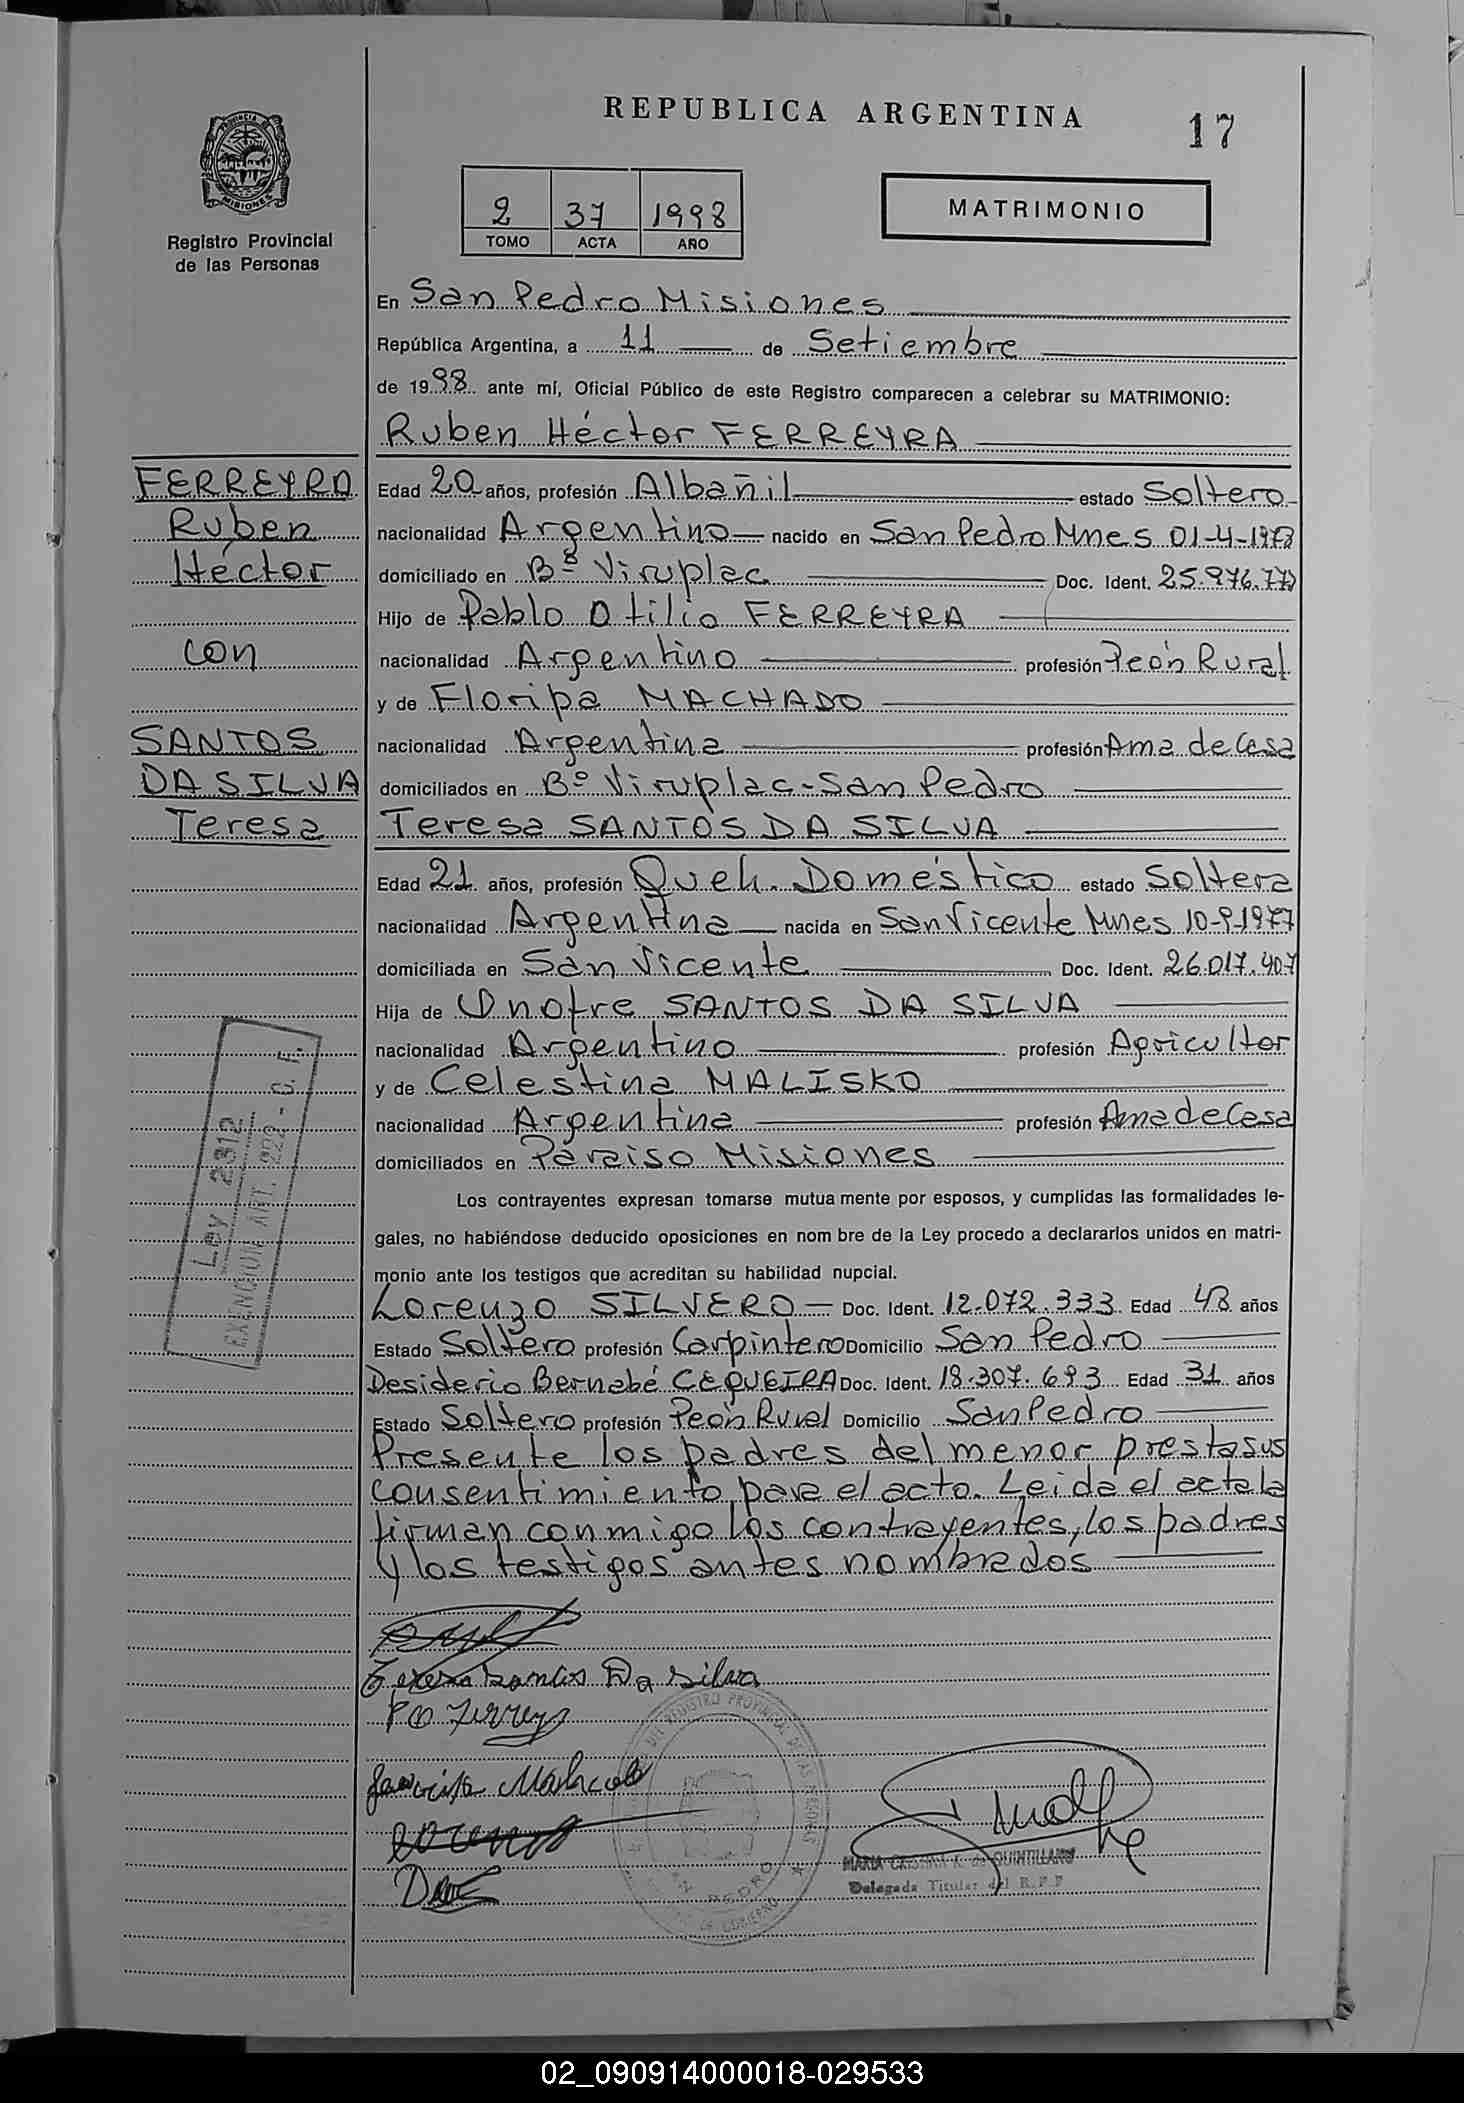 REPUBLICA ARGENTINA
17
PROVINCIA DE
MISIONES
Registro Provincial
de las Personas
2 37 1998
TOMO ACTA AÑO
MATRIMONIO
En San Pedro Misiones
República Argentina, a 11 de Setiembre
de 1998 ante mí, Oficial Público de este Registro comparecen a celebrar su MATRIMONIO:
Ruben Héctor FERREYRA
FERREYRA
Ruben
Héctor
con
SANTOS
DA SILVA
Teresa
Edad 20 años, profesión Albañil estado Soltero
nacionalidad Argentino nacido en San Pedro Mnes 01-4-1978
domiciliado en Bº Viruplac Doc. Ident. 25.976.77
Hijo de Pablo Otilio FERREYRA
nacionalidad Argentino profesión Peón Rural
y de Floripa MACHADO
nacionalidad Argentina profesión Ama de Casa
domiciliados en Bº Viruplac-San Pedro
Teresa SANTOS DA SILVA
Edad 21 años, profesión Queh. Doméstico estado Soltera
nacionalidad Argentina nacida en San Vicente Mnes 10-9-1977
domiciliada en San Vicente Doc. Ident. 26.017.407
Hija de Onofre SANTOS DA SILVA
nacionalidad Argentino profesión Agricultor
y de Celestina MALISKO
nacionalidad Argentina profesión Ama de Casa
domiciliados en Paraiso Misiones
Ley 2312
EXENCION ART. 222 - C. F.
Los contrayentes expresan tomarse mutua mente por esposos, y cumplidas las formalidades le-
gales, no habiéndose deducido oposiciones en nom bre de la Ley procedo a declararlos unidos en matri-
monio ante los testigos que acreditan su habilidad nupcial.
Lorenzo SILVERO Doc. Ident. 12.072.333 Edad 43 años
Estado Soltero profesión Carpintero Domicilio San Pedro
Desiderio Bernabé CEQUEIRA Doc. Ident. 18.307.693 Edad 31 años
Estado Soltero profesión Peón Rural Domicilio San Pedro
Presente los padres del menor presta sus
consentimiento para el acto. Leida el acta la
firman conmigo los contrayentes, los padres
y los testigos antes nombrados
Teresa Santos Da Silva
P O Ferreyra
Machado
REGISTRO PROVINCIAL DE LAS PERSONAS
SAN PEDRO
DE GOBIERNO
MARIA CRISTINA K. de QUINTILLANO
Delegada Titular del R. P. P.
02_090914000018-029533